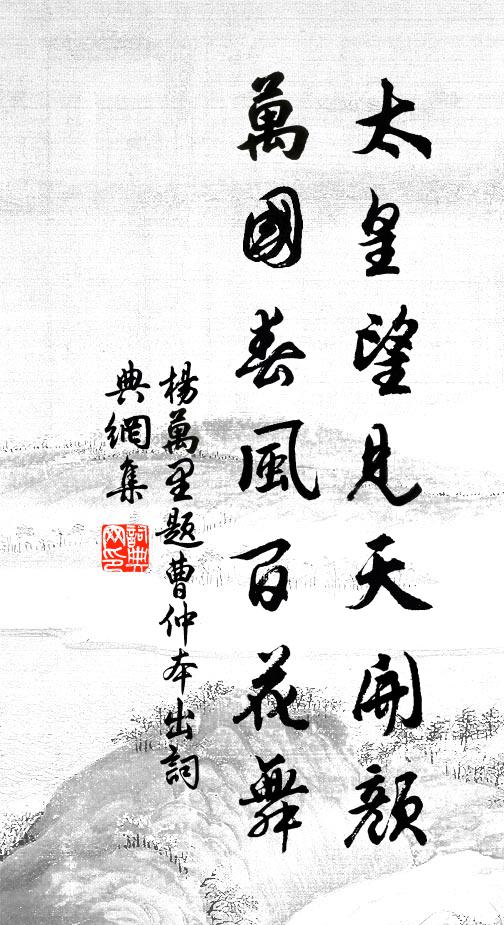 太皇望見天開顏
萬國春風百花舞
楊萬里題曹仲本出詞
典網集
詞典網印